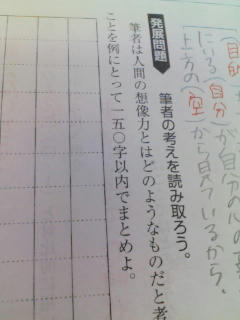 (自
にいる(自分が自分の
上方の(空)から見ているから。
発展問題
筆者の考えを読み取ろう。
筆者は人間の想像力とはどのようなものだと考
ことを例にとって一五〇字以内でまとめよ。